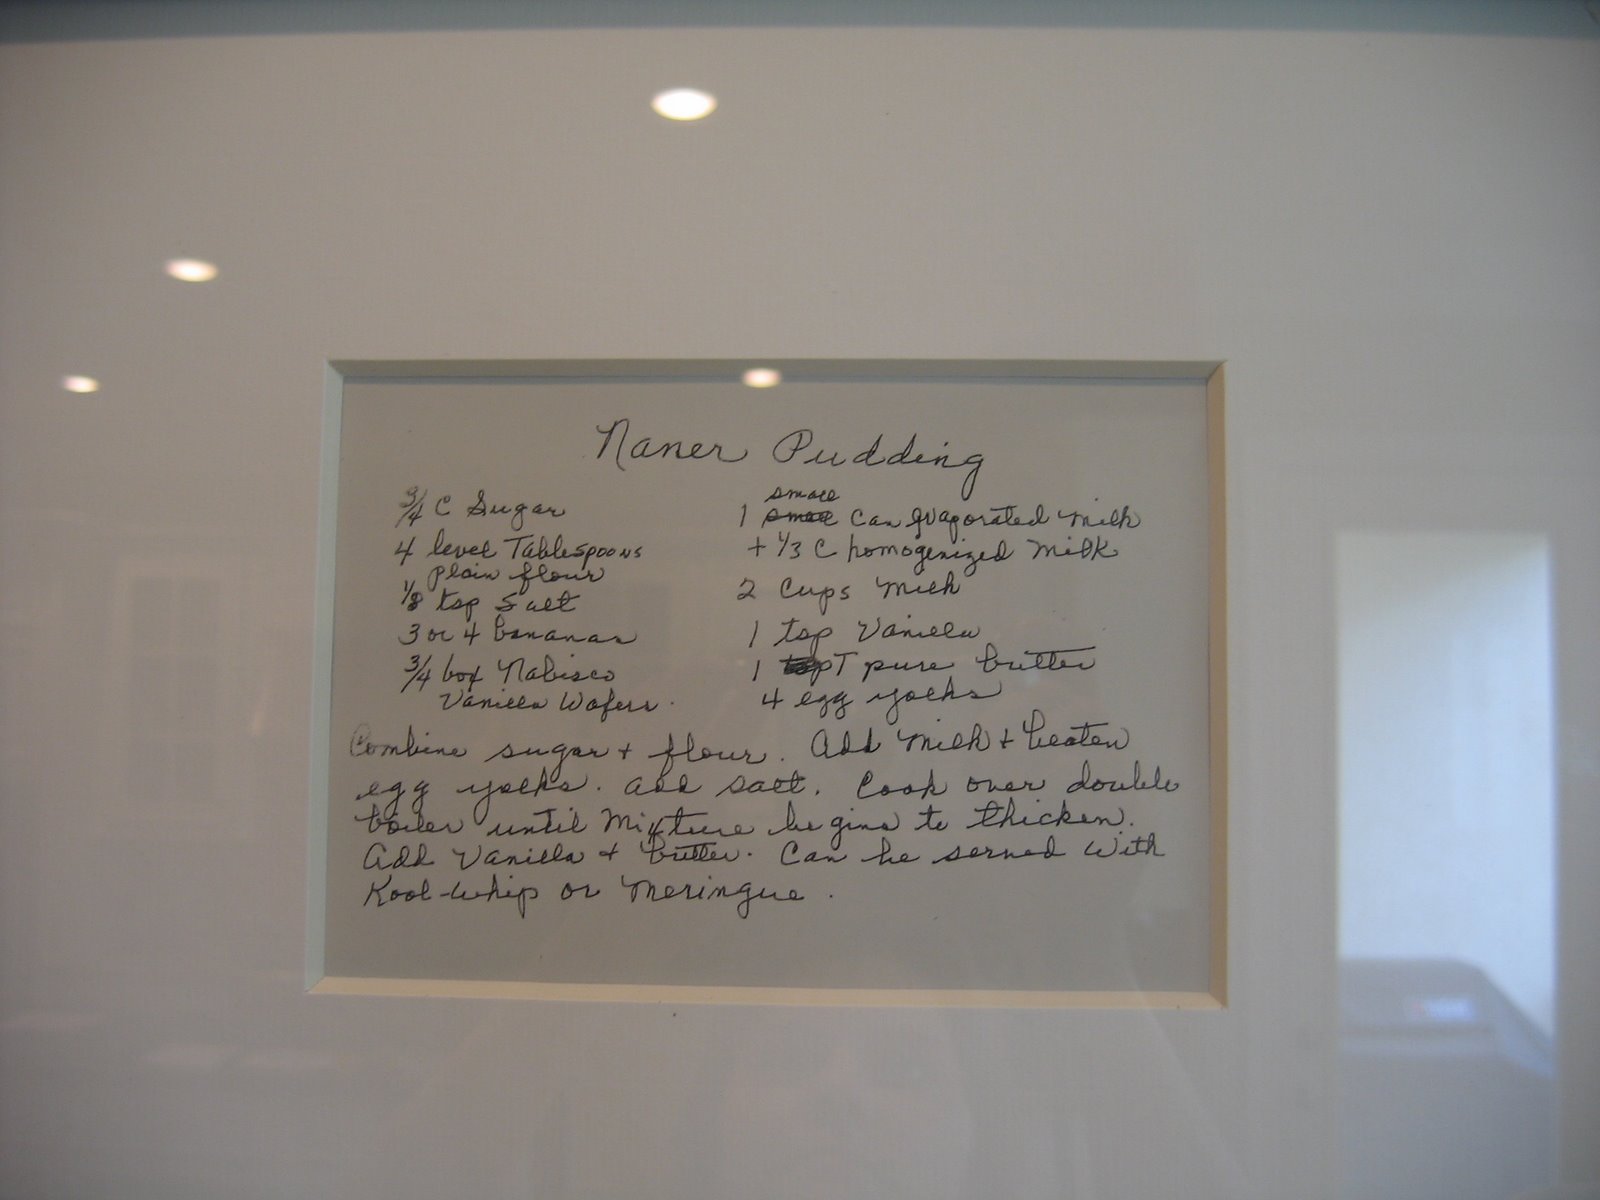 Naner Pudding
3/4 C Sugar
4 level Tablespoons
plain flour
1/8 tsp Salt
3 or 4 bananas
3/4 box Nabisco
Vanilla Wafers.
small
1 small Can Evaporated Milk
+ 1/3 C homogenized Milk
2 Cups Milk
1 tsp Vanilla
1 T pure butter
4 egg yolks
Combine sugar + flour. Add Milk + beaten
egg yolks. Add Salt. Cook over double
boiler until Mixture begins to thicken.
Add Vanilla + butter. Can be served with
Kool-whip or Meringue.